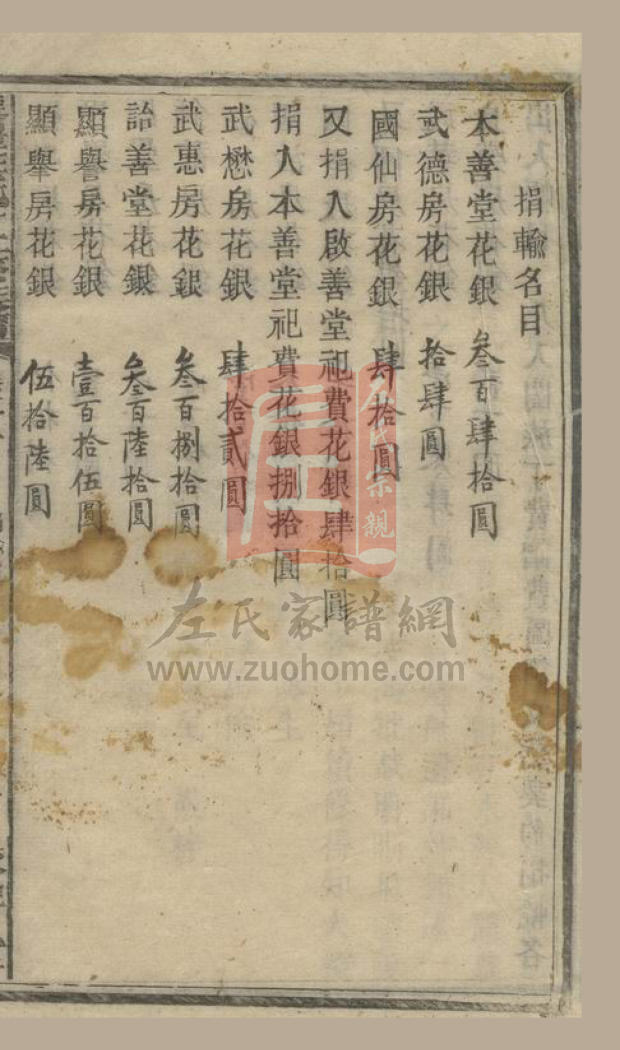 捐輸名目
本善堂花銀 叁百肆拾圓
武德房花銀 拾肆圓
國仙房花銀 肆拾圓
又捐入啟善堂祀費花銀肆拾圓
捐入本善堂祀費花銀捌拾圓
武懋房花銀 肆拾貳圓
武惠房花銀 叁百捌拾圓
詒善堂花銀 叁百陸拾圓
顯譽房花銀 壹百拾伍圓
顯舉房花銀 伍拾陸圓
左氏宗親
左氏家譜網
www.zuohome.com